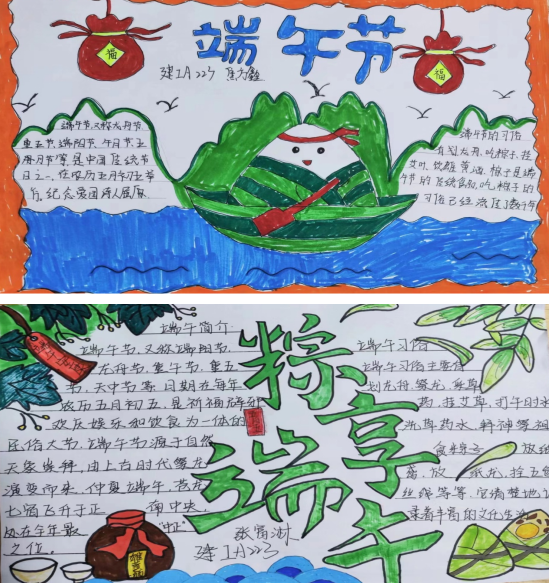 端午节
福
福
建工A223
端午节,又称龙舟节
重五节,端阳节,午月节,五
月节等,是中国传统节
日之一,在农历五月初五举
行,纪念爱国诗人屈原
端午节的习俗
有划龙舟,吃粽子,挂
艾叶,饮雄黄酒,粽子是端
午节的传统食品,吃粽子的
习俗已经流传了数千年
粽享端午
端午简介
端午节,又称端阳节,
龙舟节,重午节,重五
节,天中节等,日期在每年
农历五月初五,是祈福
欢庆娱乐和饮食为一体的
民俗大节,端午节源于自然
天象崇拜,由上古时代祭龙
演变而来,仲夏端午,苍龙
七宿飞升于正南中央,
处在全年最"中正"
之位。
端午习俗
端午习俗主要有
划龙舟,祭龙,采草
药,挂艾草,打午时水
洗草药水,拜神祭祖
食粽子
放纸龙,拴五色
丝线等等,
丰富的文化生活
建工A223